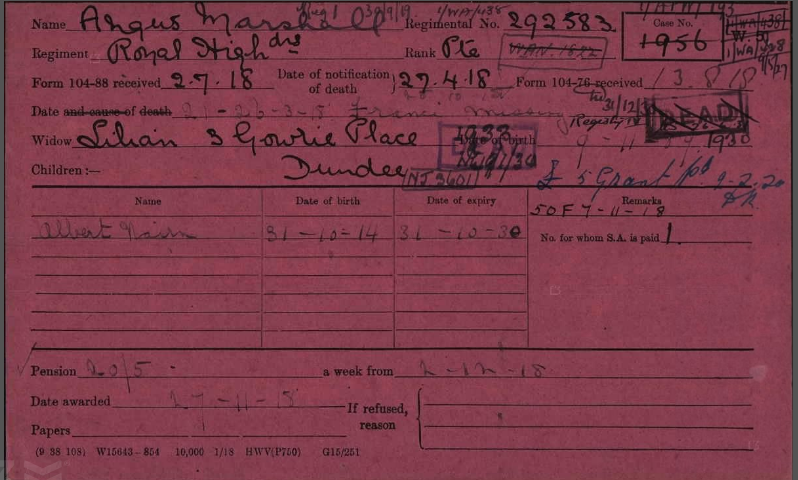 Name Angus Marshall Regimental No. 292583. Case No. 1956
Regiment Royal High drs Rank Pte
Form 104-88 received 2.7.18 Date of notification of death 27.4.18 Form 104-76 received 13.8.18
Date and cause of death 21-26-3-18 France Missing
Widow Lilian 3 Gowrie Place Date of birth
Children :— Dundee
NJ 3601
£5 Grant pd. 9-2-20
Name Date of birth Date of expiry Remarks
SOF 7-11-18
Albert Nairn 31-10-14 31-10-30 No. for whom S.A. is paid 1.
Pension 20/5 a week from 2-12-18
Date awarded 27-11-18 If refused, reason
Papers
(9 38 108) W15643-854 10,000 1/18 HWV(P750) G15/251